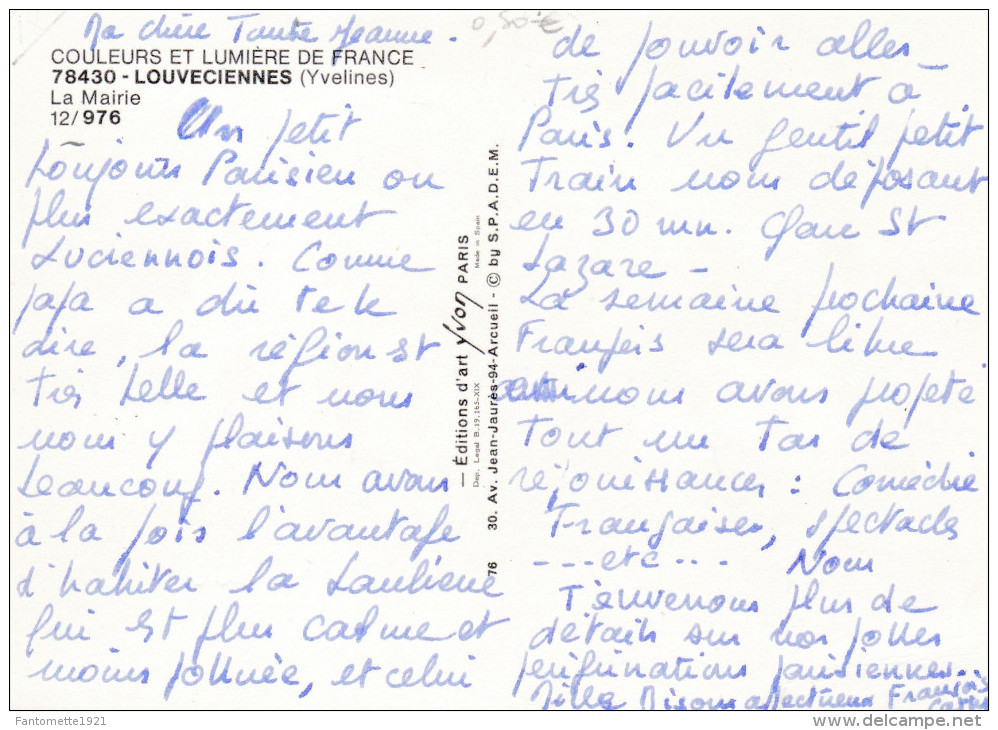 Ma chère Tante Jeanne.
0,50 €
COULEURS ET LUMIÈRE DE FRANCE
78430 - LOUVECIENNES (Yvelines)
La Mairie
12/976
Un petit
toujours Parisien ou
plus exactement
Luciennois. Comme
papa a dû te le
dire, la région est
très belle et nous
nous y plaisons
beaucoup. Nous avons
à la fois l'avantage
d'habiter la banlieue
qui est plus calme et
moins polluée, et celui
— Éditions d'art yvon PARIS
Dep. Legal B. 19.165-XIX
Made in Spain
30. Av. Jean-Jaurès-94-Arcueil - © by S.P.A.D.E.M.
76
de pouvoir aller
très facilement à
Paris. Un gentil petit
Train nous déposant
en 30 mn. Gare St
Lazare -
La semaine prochaine
François sera libre
nous avons projeté
tout un tas de
réjouissances : Comédie
Française, spectacles
---etc... Nous
t'enverrons plus de
détails sur nos folles
pérégrinations parisiennes..
Mille Bisous affectueux François
Fantomette1921
delcampe.net